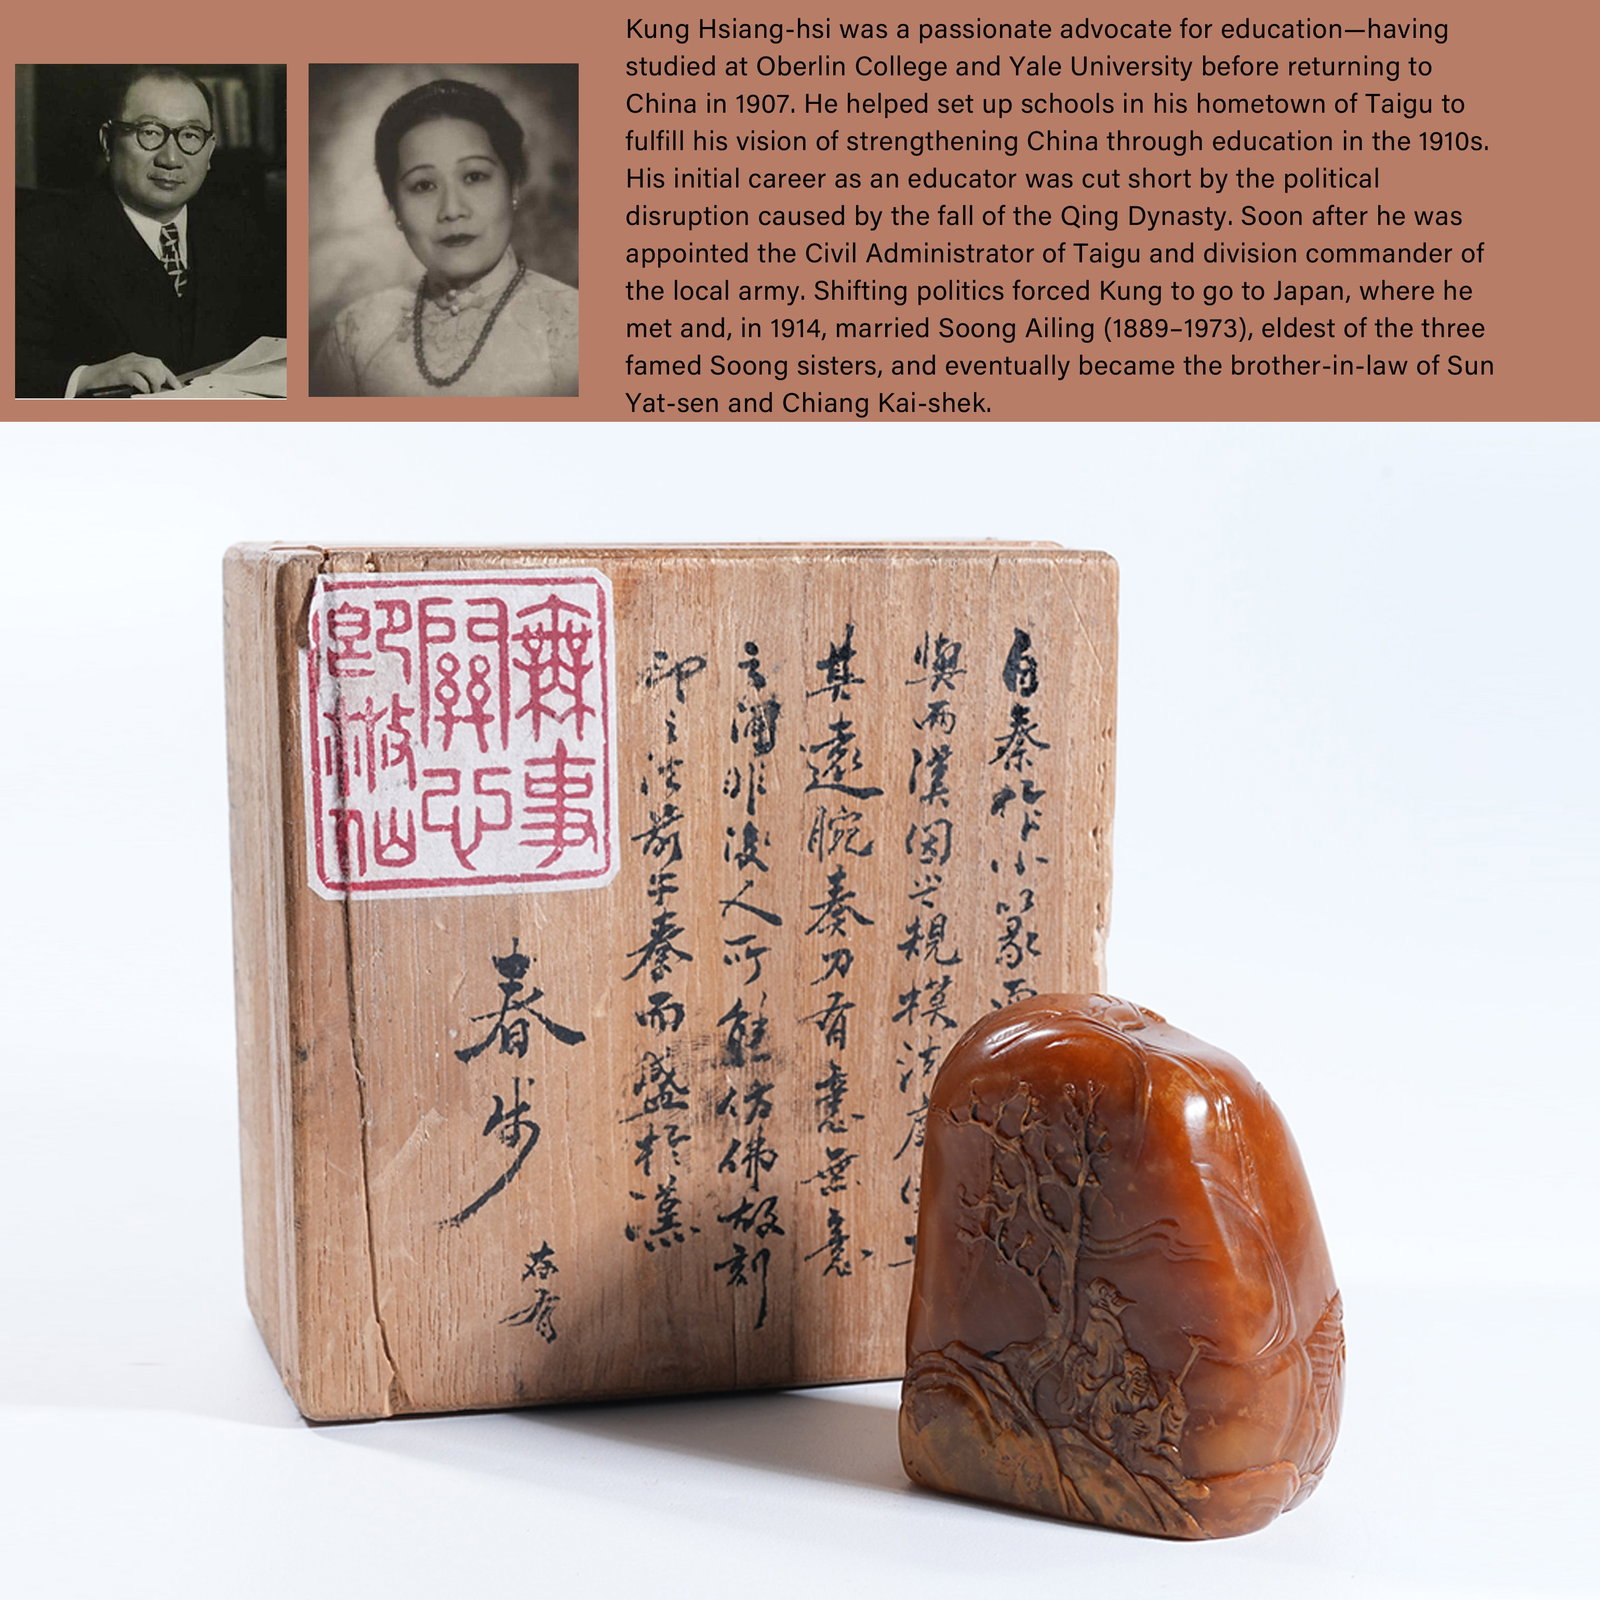 Kung Hsiang-hsi was a passionate advocate for education—having
studied at Oberlin College and Yale University before returning to
China in 1907. He helped set up schools in his hometown of Taigu to
fulfill his vision of strengthening China through education in the 1910s.
His initial career as an educator was cut short by the political
disruption caused by the fall of the Qing Dynasty. Soon after he was
appointed the Civil Administrator of Taigu and division commander of
the local army. Shifting politics forced Kung to go to Japan, where he
met and, in 1914, married Soong Ailing (1889–1973), eldest of the three
famed Soong sisters, and eventually became the brother-in-law of Sun
Yat-sen and Chiang Kai-shek.
無事
關心
即散仙
自秦相作小篆而
兩漢因之規模法度
其遠腕奏刀有意無意
之間非後人所能仿佛故刻
印之法于秦而盛於漢
春